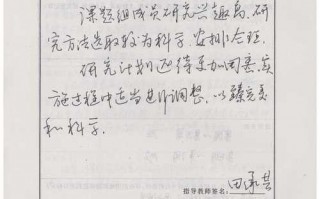 课题组成员研究兴趣高,研
究方法选取较为科学,安排合理.
研究计划还得更加周密,实
施过程中适当进行调整,以臻完美
和科学.
指导教师签名:田